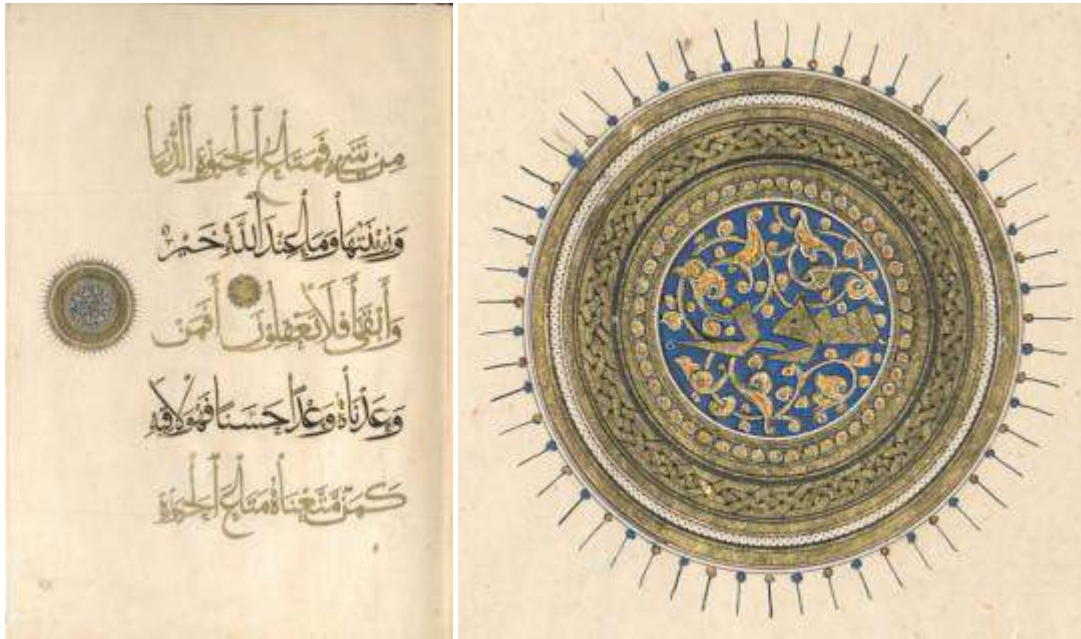 مِن شَيْءٍ فَمَتَاعُ الْحَيَوٰةِ الدُّنْيَا
وَزِينَتُهَا وَمَا عِنْدَ اللَّهِ خَيْرٌ
وَأَبْقَىٰ أَفَلَا تَعْقِلُونَ أَفَمَن
وَعَدْنَاهُ وَعْدًا حَسَنًا فَهُوَ لَاقِيهِ
كَمَن مَّتَّعْنَاهُ مَتَاعَ الْحَيَوٰةِ